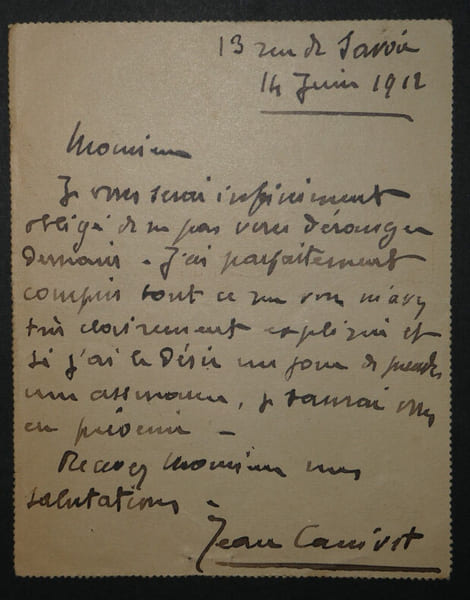 13 rue de Savoie
14 Juin 1912
Monsieur
Je vous serai infiniment
obligé de ne pas vous déranger
demain - J'ai parfaitement
compris tout ce que vous m'avez
très clairement expliqué et
si j'ai le désir un jour de prendre
une assurance, je saurai vous
en prévenir -
Recevez Monsieur mes
salutations -
Jean